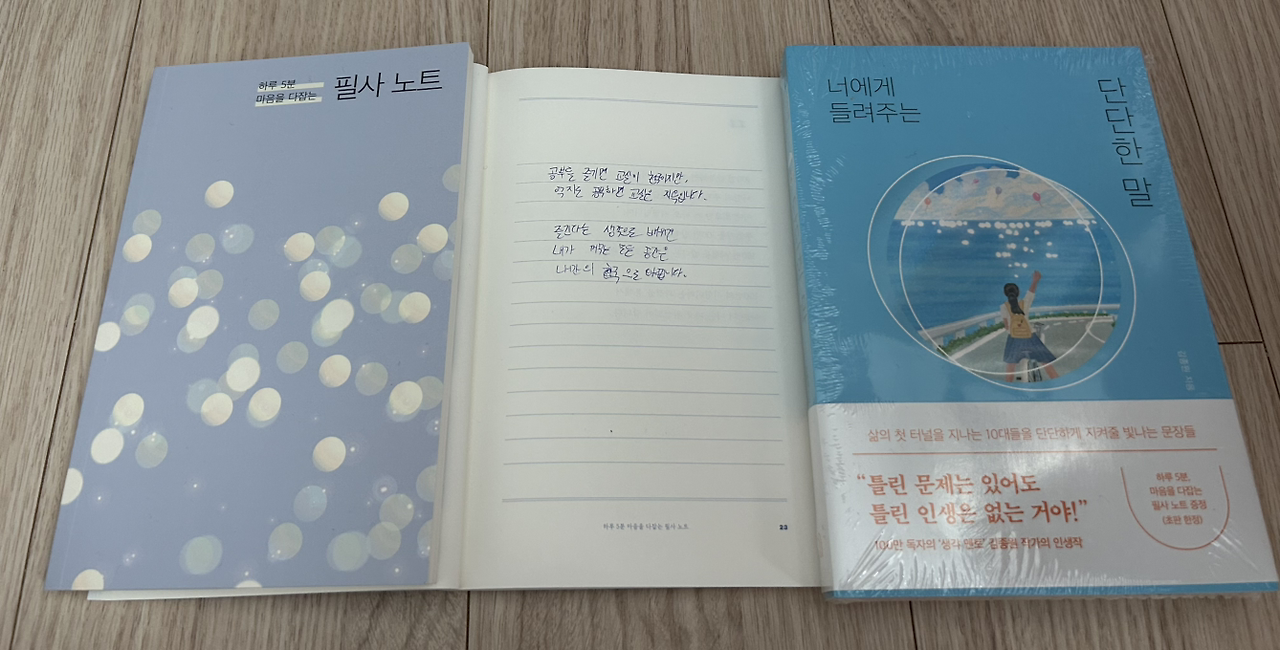 하루 5분
마음을 다잡는
필사 노트
공부를 즐기면 교실이 천국이지만,
억지로 공부하면 교실은 지옥입니다.
내가 머무는 모든 공간은
나만의 천국으로 바뀝니다.
하루 5분 마음을 다잡는 필사 노트
23
너에게
들려주는
단단한 말
김종원 지음
삶의 첫 터널을 지나는 10대들을 단단하게 지켜줄 빛나는 문장들
“틀린 문제는 있어도
틀린 인생은 없는 거야!”
100만 독자의 '생각 멘토' 김종원 작가의 인생작
하루 5분,
마음을 다잡는
필사 노트 증정
(초판 한정)